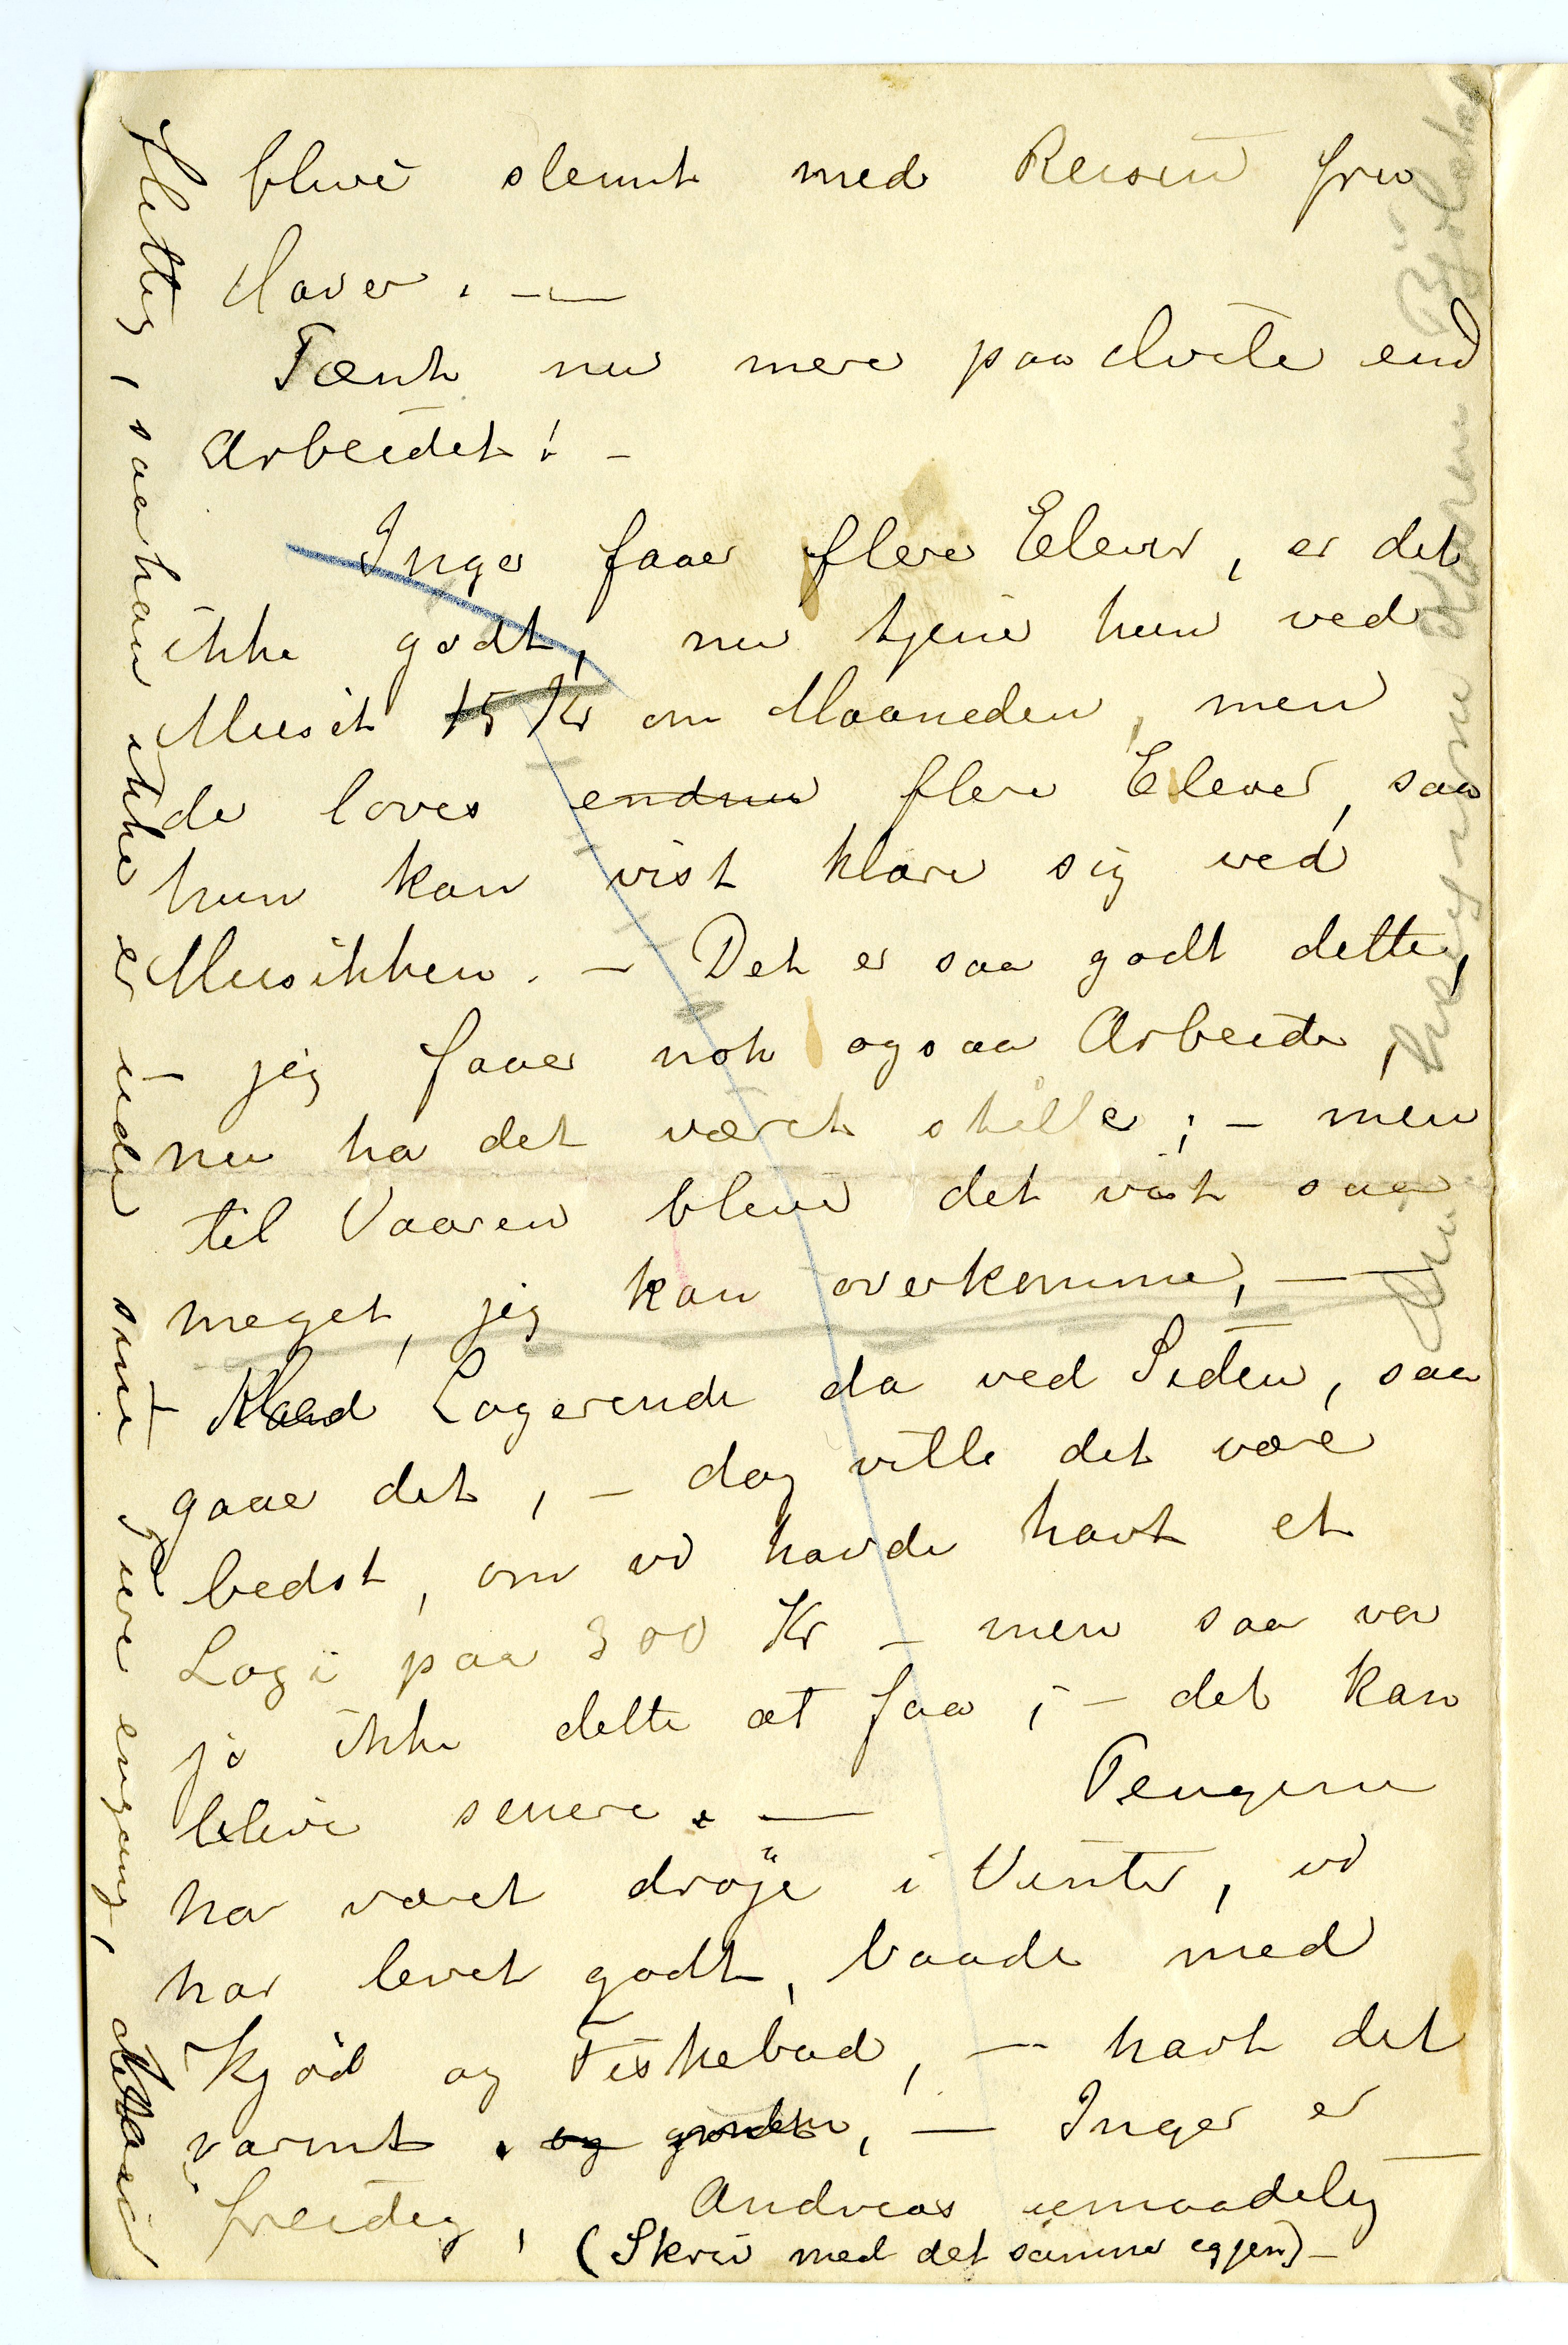 blive slemt med Reisen fra
Haver. —
Tænk nu mere paa Hvile end
Arbeidet! –
Inger faaer flere Elever, er det
ikke godt, nu tjene hun ved
Musik 15 Kr om Maaneden, men
de loves endnu flere Elever, saa
hun kan vist klare sig ved
Musikken. – Det er saa godt dette,
– jeg faaer nok ogsaa Arbeide,
nu ha det været stille; – men
til Vaaren blive det vist saa
meget, jeg kan overkomme, — —
Med Logerende da ved Siden, saa
gaae det, – dog ville det være
bedst, om vi havde havt et
Logi paa 300 Kr – men saa va
jo ikke dette at faa; – det kan
blive senere. — Pengene
ha været drøje i Vinter, vi
har levet godt, baade med
Kjød og Fiskebad, — havt det
varmt. og — Inger er
freidig, Andreas umaadelig
(Skriv med det samme igjen) –
flittig, saa han ikke er ude sine Ture engang,
Karen Bjølstad